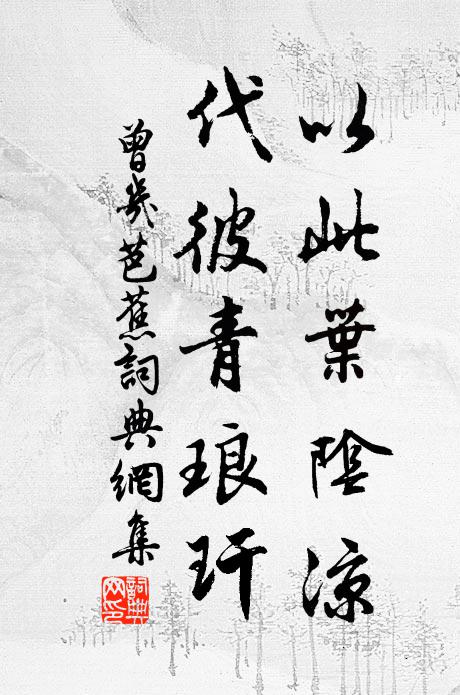 以此葉陰涼
代彼青琅玕
曾幾芭蕉詞典網集